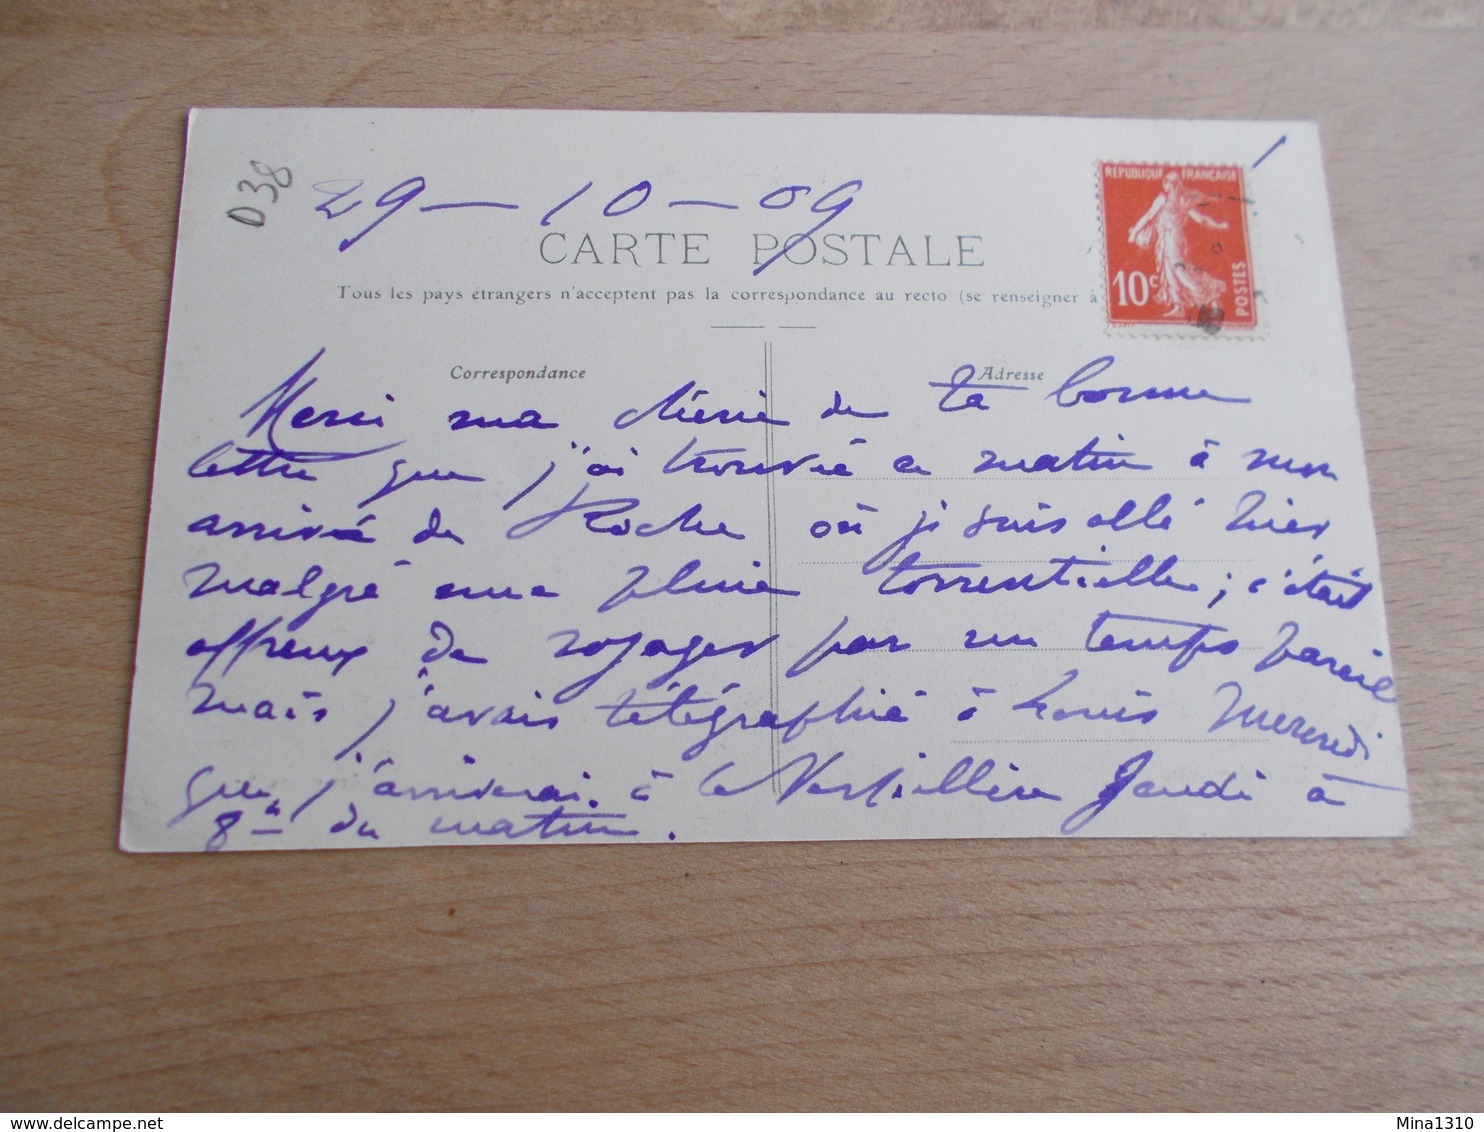 D38
29 - 10 - 09
REPUBLIQUE FRANÇAISE
10c
POSTES
CARTE POSTALE
Tous les pays étrangers n'acceptent pas la correspondance au recto (se renseigner à
Correspondance
Adresse
Merci ma chérie de ta bonne
lettre que j'ai trouvée ce matin à mon
arrivée de Roche où je suis allé hier
malgré une pluie torrentielle ; c'était
affreux de voyager par un temps pareil
mais j'avais télégraphié à Louis Mercredi
que j'arriverai à la Verpillière Jeudi à
8h du matin.
Mina1310